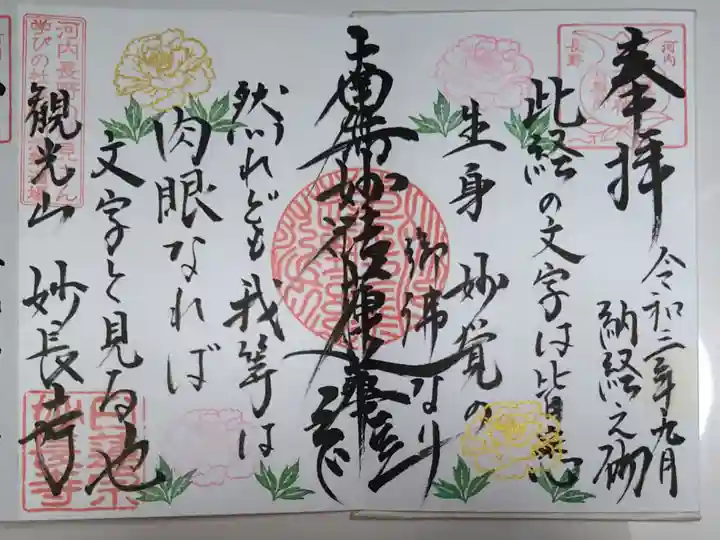 奉拝
令和三年九月
納経之砌
河内
長野
此経の文字は皆悉
生身 妙覚の
御佛なり
南無妙法蓮華経
然れども我等は
肉眼なれば
文字と見る也
観光山 妙長寺
河内長野
学びの社
日蓮宗
妙長寺